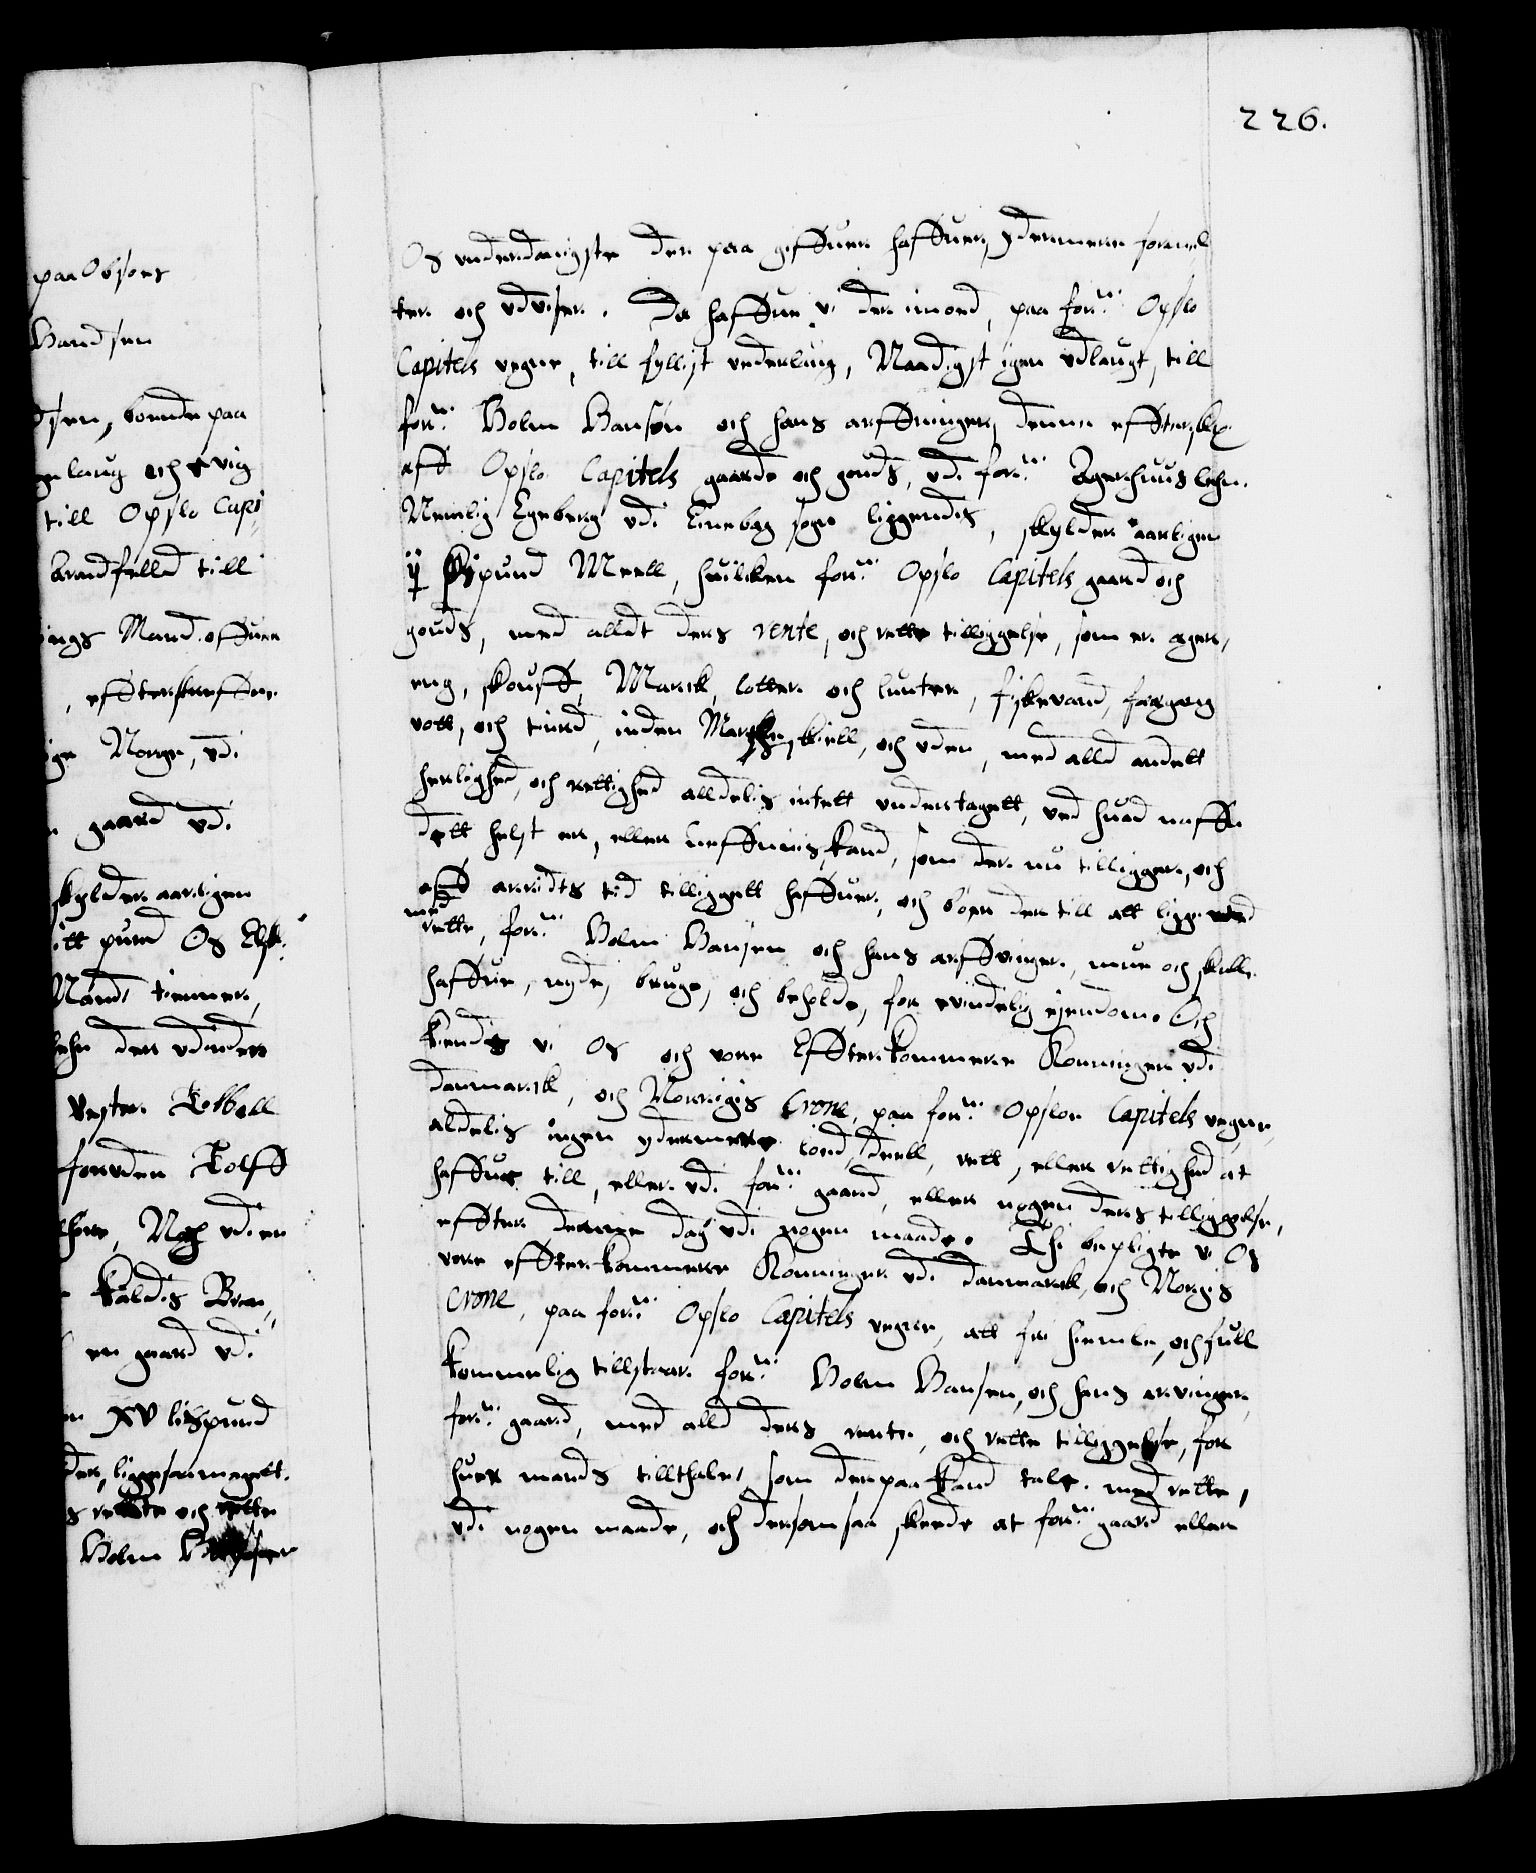 226.
paa Obsoes
Baudsen
dsen, boende paa
gelaug och Vig
till Opslo Capi
brandfelld till
ings Mand offuer
, effterskreffne
ige Norge, vdi
n gaard vdi
skylder aarligen
itt pund
timmer,
lehn der vdinden
Vester.
foruden
vdi en
kaldis Bra,
en gaard vdi
en XV lispund
der, liggesammeget.
och rette
Bolm
Os vnderdanigste der paa giffuen haffuer, ydermere formel
ter och vdviser. Da haffue vi der imod, paa for:ne Opslo
Capitels vegne, till fyllist vederlaug, Naadigst igen vdlaugt, till
for:ne Bolm Bausøn och hans arffuinger, denne effterskr:
aff Opslo Capitels gaarde och gouds, vdi for:ne Agershuus lehn.
Nemlig Egeberg vdi Enebag sogn liggendis, skylder aarligen
ij skipund Meell, huilken for:ne Opslo Capitels gaard och
gouds, med alldt ders rente, och rette tilliggelse, som er ager,
eng, skouff, Marck, lotter och lunter, fiskevand, fægang
vott, och tiurd, inden Marcke skiell, och vden, med alld andett
herlighed, och rettighed alldelis intett vndertagett, ved huad naffn
dett helst er, eller neffnis kand, som der nu tilligger, och
aff arridts tid tilliggett haffuer, och bøer der till att ligge med
med
rette, for:ne Bolm Bausen och hans arffvinger, mue och skulle
haffue, nyde, bruge, och beholde, for evindelig ejendom. Och
kiendis vi Os och vore Effterkommere Konninger vdi
danmarck, och Norrigis Crone, paa for:ne Opsloe Capitels vegne,
aldelis ingen ydermere lod, deell, rett, eller rettighed at
haffue till, eller vdi for:ne gaard, eller nogen ders tilliggelse,
effter denne dag vdi nogen maade. Thi bepligte vi Os
vore effterkommere Konninger vdi danmarck, och Norgis
Crone, paa for:ne Opslo Capitels vegne, att fri hiemle, och full
kommelig tillstaar for:ne Bolm Bausen, och hans arvinger,
for:ne gaard, med alld ders rente, och rette tilliggelse, for
huer mands tillthale, som der paa kand tale med rette,
vdi nogen maade, och dersom saa skeede at for:ne gaard eller